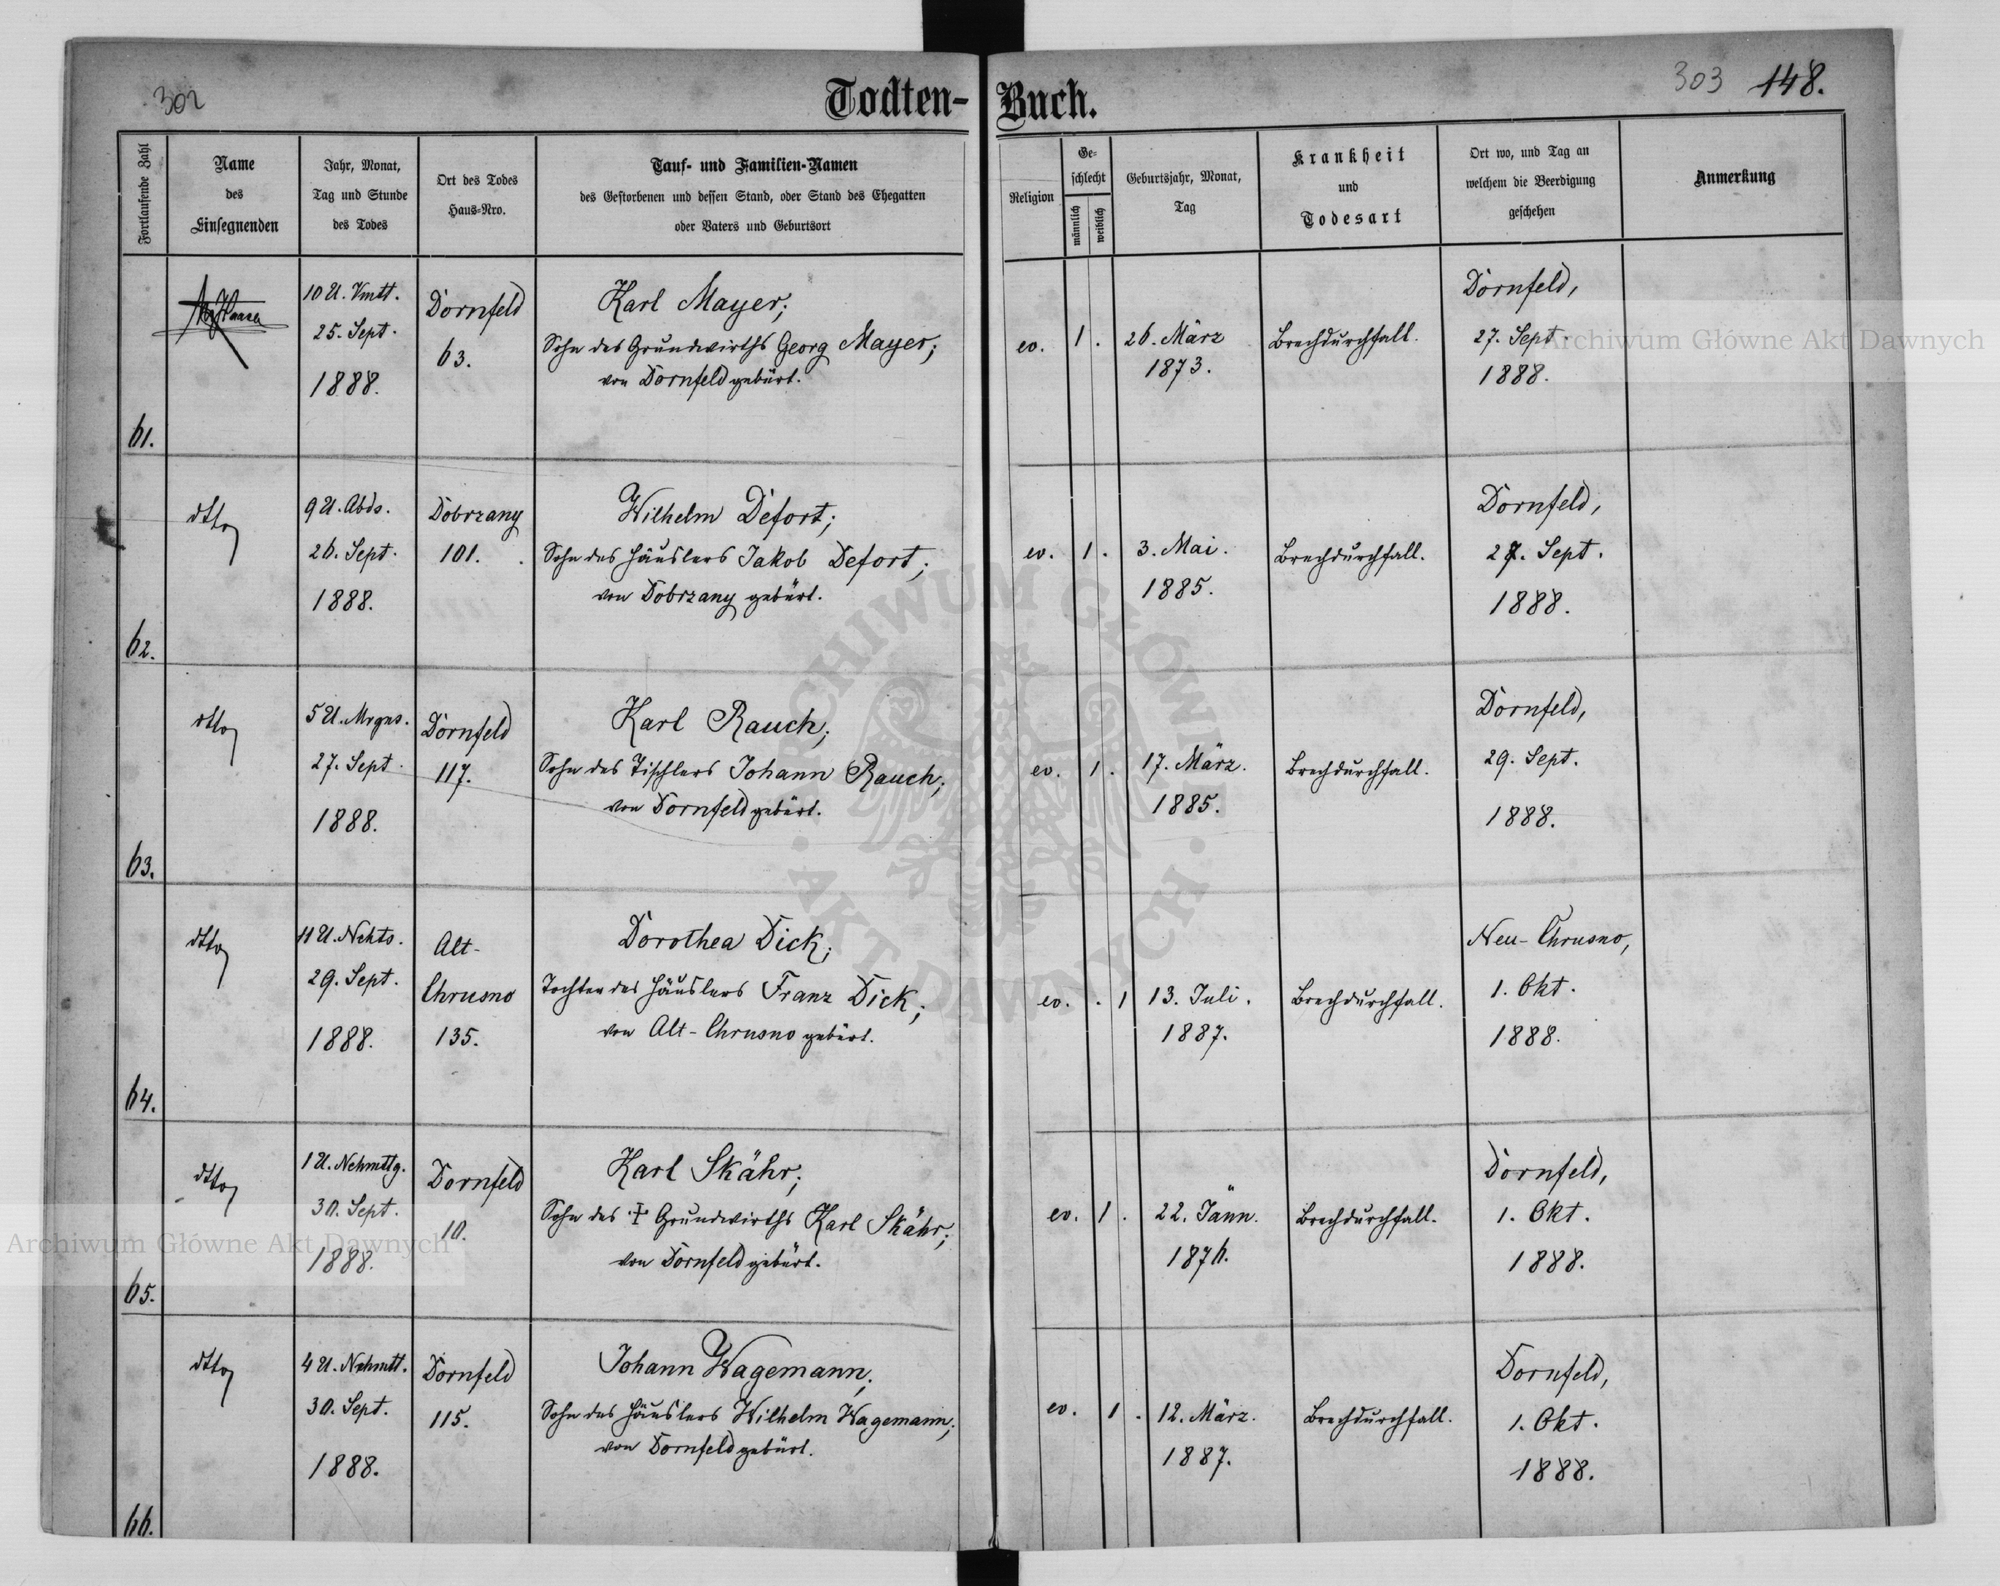 302
Todten-
Buch.
303 148.
Fortlaufende Zahl
Name
des
Einsegnenden
Jahr, Monat,
Tag und Stunde
des Todes
Ort des Todes
Haus-Nro.
Tauf- und Familien-Namen
des Gestorbenen und dessen Stand, oder Stand des Ehegatten
oder Vaters und Geburtsort
Religion
Ge-
schlecht
männlich
weiblich
Geburtsjahr, Monat,
Tag
Krankheit
und
Todesart
Ort wo, und Tag an
welchem die Beerdigung
geschehen
Anmerkung
61.
10 U. Vmtt.
25. Sept.
1888.
Dornfeld
63.
Karl Mayer;
Sohn des Grundwirths Georg Mayer;
von Dornfeld gebürt.
ev.
1 .
26. März
1873.
Brechdurchfall.
Dornfeld,
27. Sept.
1888.
62.
dtto
9 U. Abds.
26. Sept.
1888.
Dobrzany
101.
Wilhelm Defort;
Sohn des Häuslers Jakob Defort;
von Dobrzany gebürt.
ev.
1 .
3. Mai.
1885.
Brechdurchfall.
Dornfeld,
27. Sept.
1888.
63.
dtto
5 U. Mrgns.
27. Sept.
1888.
Dornfeld
117.
Karl Rauch;
Sohn des Tischlers Johann Rauch;
von Dornfeld gebürt.
ev.
1 .
17. März.
1885.
Brechdurchfall.
Dornfeld,
29. Sept.
1888.
64.
dtto
11 U. Nchts.
29. Sept.
1888.
Alt-
Chrusno
135.
Dorothea Dick;
Tochter des Häuslers Franz Dick;
von Alt-Chrusno gebürt.
ev.
. 1
13. Juli.
1887.
Brechdurchfall.
Neu-Chrusno,
1. Okt.
1888.
65.
dtto
1 U. Nchmttg.
30. Sept.
1888.
Dornfeld
10.
Karl Skähr;
Sohn des † Grundwirths Karl Skähr;
von Dornfeld gebürt.
ev.
1 .
22. Jänn.
1876.
Brechdurchfall.
Dornfeld,
1. Okt.
1888.
66.
dtto
4 U. Nchmtt.
30. Sept.
1888.
Dornfeld
115.
Johann Wagemann;
Sohn des Häuslers Wilhelm Wagemann;
von Dornfeld gebürt.
ev.
1 .
12. März.
1887.
Brechdurchfall.
Dornfeld,
1. Okt.
1888.
Archiwum Główne Akt Dawnych
Archiwum Główne Akt Dawnych
ARCHIWUM GŁÓWNE
AKT DAWNYCH